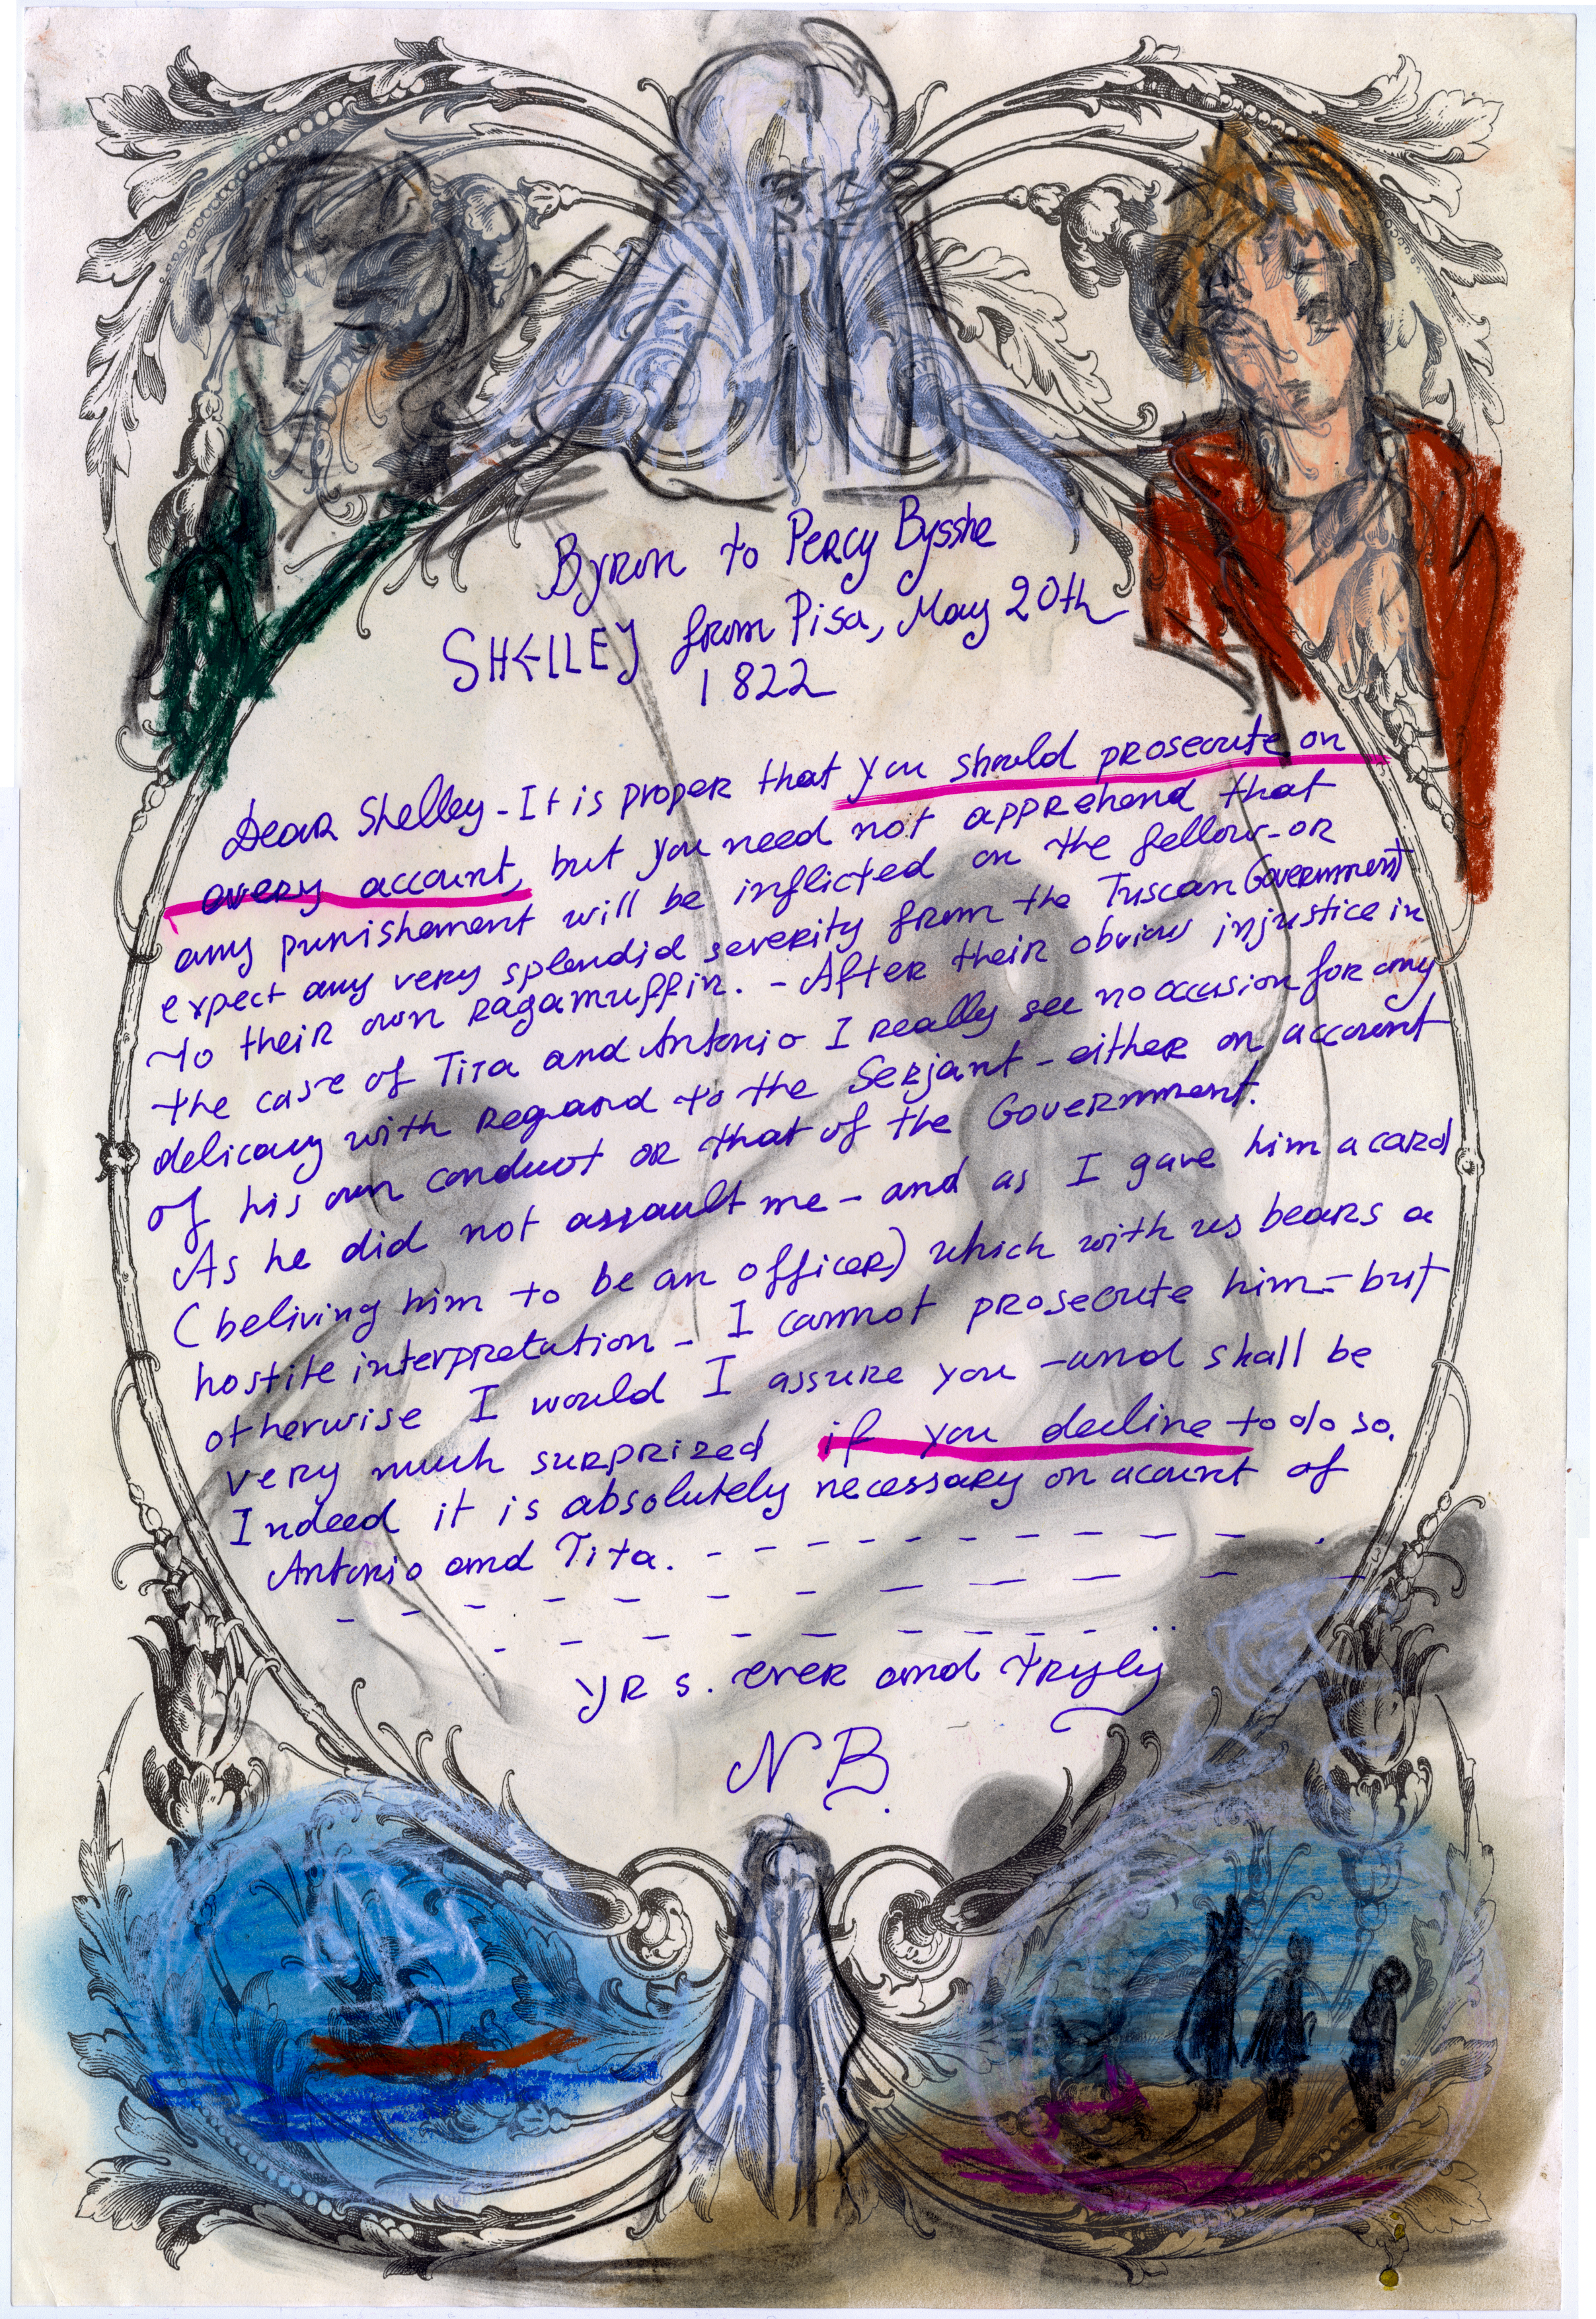 Byron to Percy Bysshe
SHELLEY from Pisa, May 20th
1822
Dear Shelley - It is proper that you should prosecute on
every account, but you need not apprehend that
any punishement will be inflicted on the fellow - or
expect any very splendid severity from the Tuscan Government
to their own ragamuffin. - After their obvious injustice in
the case of Tita and Antonio I really see no occasion for any
delicacy with regard to the Serjant - either on account
of his own conduct or that of the Government.
As he did not assault me - and as I gave him a card
(beliving him to be an officer) which with us bears a
hostile interpretation - I cannot prosecute him - but
otherwise I would I assure you - and shall be
very much surprized if you decline to do so.
Indeed it is absolutely necessary on acount of
Antonio and Tita. - - - - - - - - - .
- - - - - - - - - - -
- - - - - - - - - - ..
yr s. ever and tryly
N B.